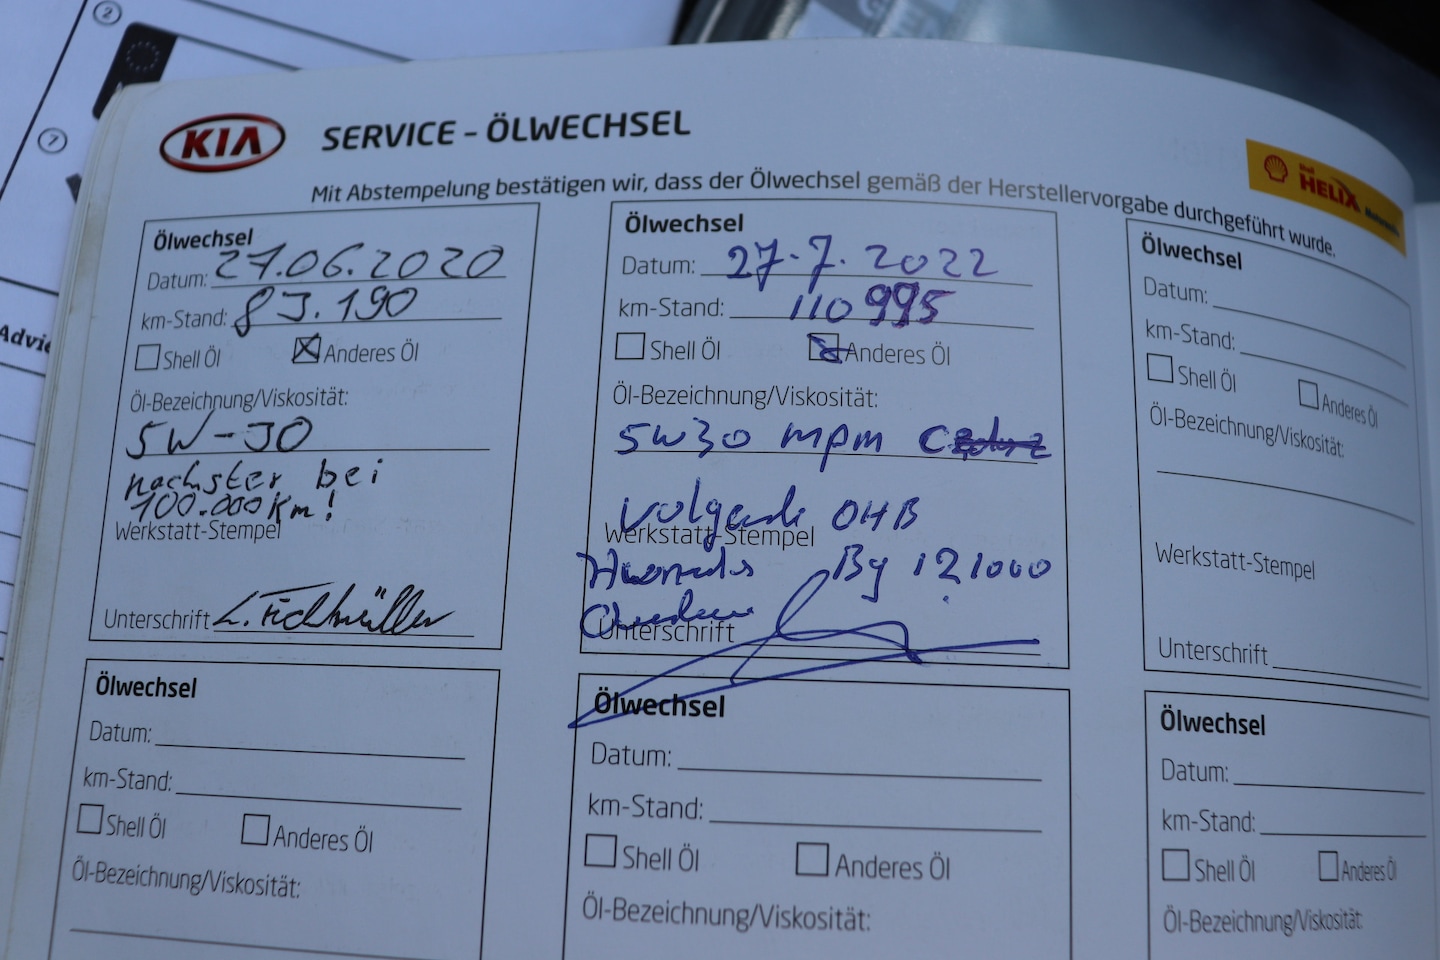 2
7
Advi
KIA
SERVICE – ÖLWECHSEL
Mit Abstempelung bestätigen wir, dass der Ölwechsel gemäß der Herstellervorgabe durchgeführt wurde.
Shell
HELIX
Ölwechsel
Datum: 27.06.2020
km-Stand: 83.190
Shell Öl Anderes Öl
Öl-Bezeichnung/Viskosität:
5W-30
nächster bei
100.000 Km!
Werkstatt-Stempel
Unterschrift
Ölwechsel
Datum: 27.7.2022
km-Stand: 110995
Shell Öl Anderes Öl
Öl-Bezeichnung/Viskosität:
5W30 mpm
Volgende OHB
Werkstatt-Stempel
By 121000
Unterschrift
Ölwechsel
Datum:
km-Stand:
Shell Öl Anderes Öl
Öl-Bezeichnung/Viskosität:
Werkstatt-Stempel
Unterschrift
Ölwechsel
Datum:
km-Stand:
Shell Öl Anderes Öl
Öl-Bezeichnung/Viskosität:
Ölwechsel
Datum:
km-Stand:
Shell Öl Anderes Öl
Öl-Bezeichnung/Viskosität:
Ölwechsel
Datum:
km-Stand:
Shell Öl Anderes Öl
Öl-Bezeichnung/Viskosität: